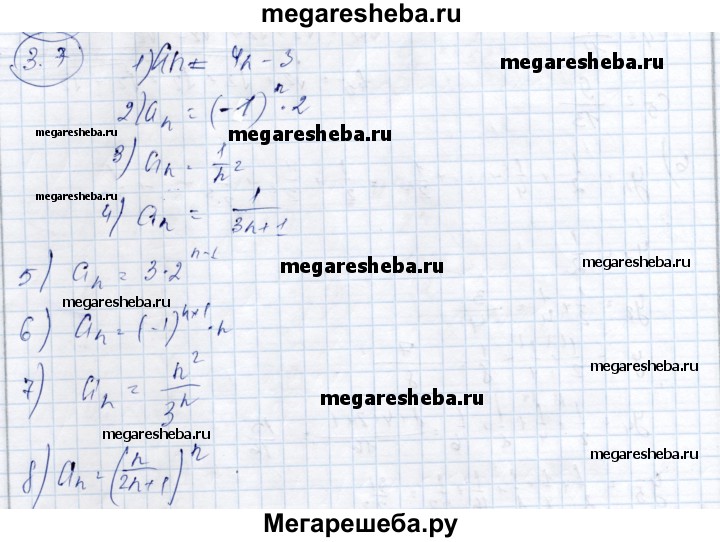 megaresheba.ru
3.7 1) an = 4n - 3
megaresheba.ru
2) an = (-1)^n · 2
megaresheba.ru megaresheba.ru
3) an = 1/n²
megaresheba.ru
4) an = 1/(3n+1)
5) an = 3·2^(n-1) megaresheba.ru megaresheba.ru
megaresheba.ru
6) an = (-1)^(n+1) · n
megaresheba.ru
7) an = n²/3^n megaresheba.ru
megaresheba.ru megaresheba.ru
8) an = (n/(2n+1))^n
Мегарешеба.ру